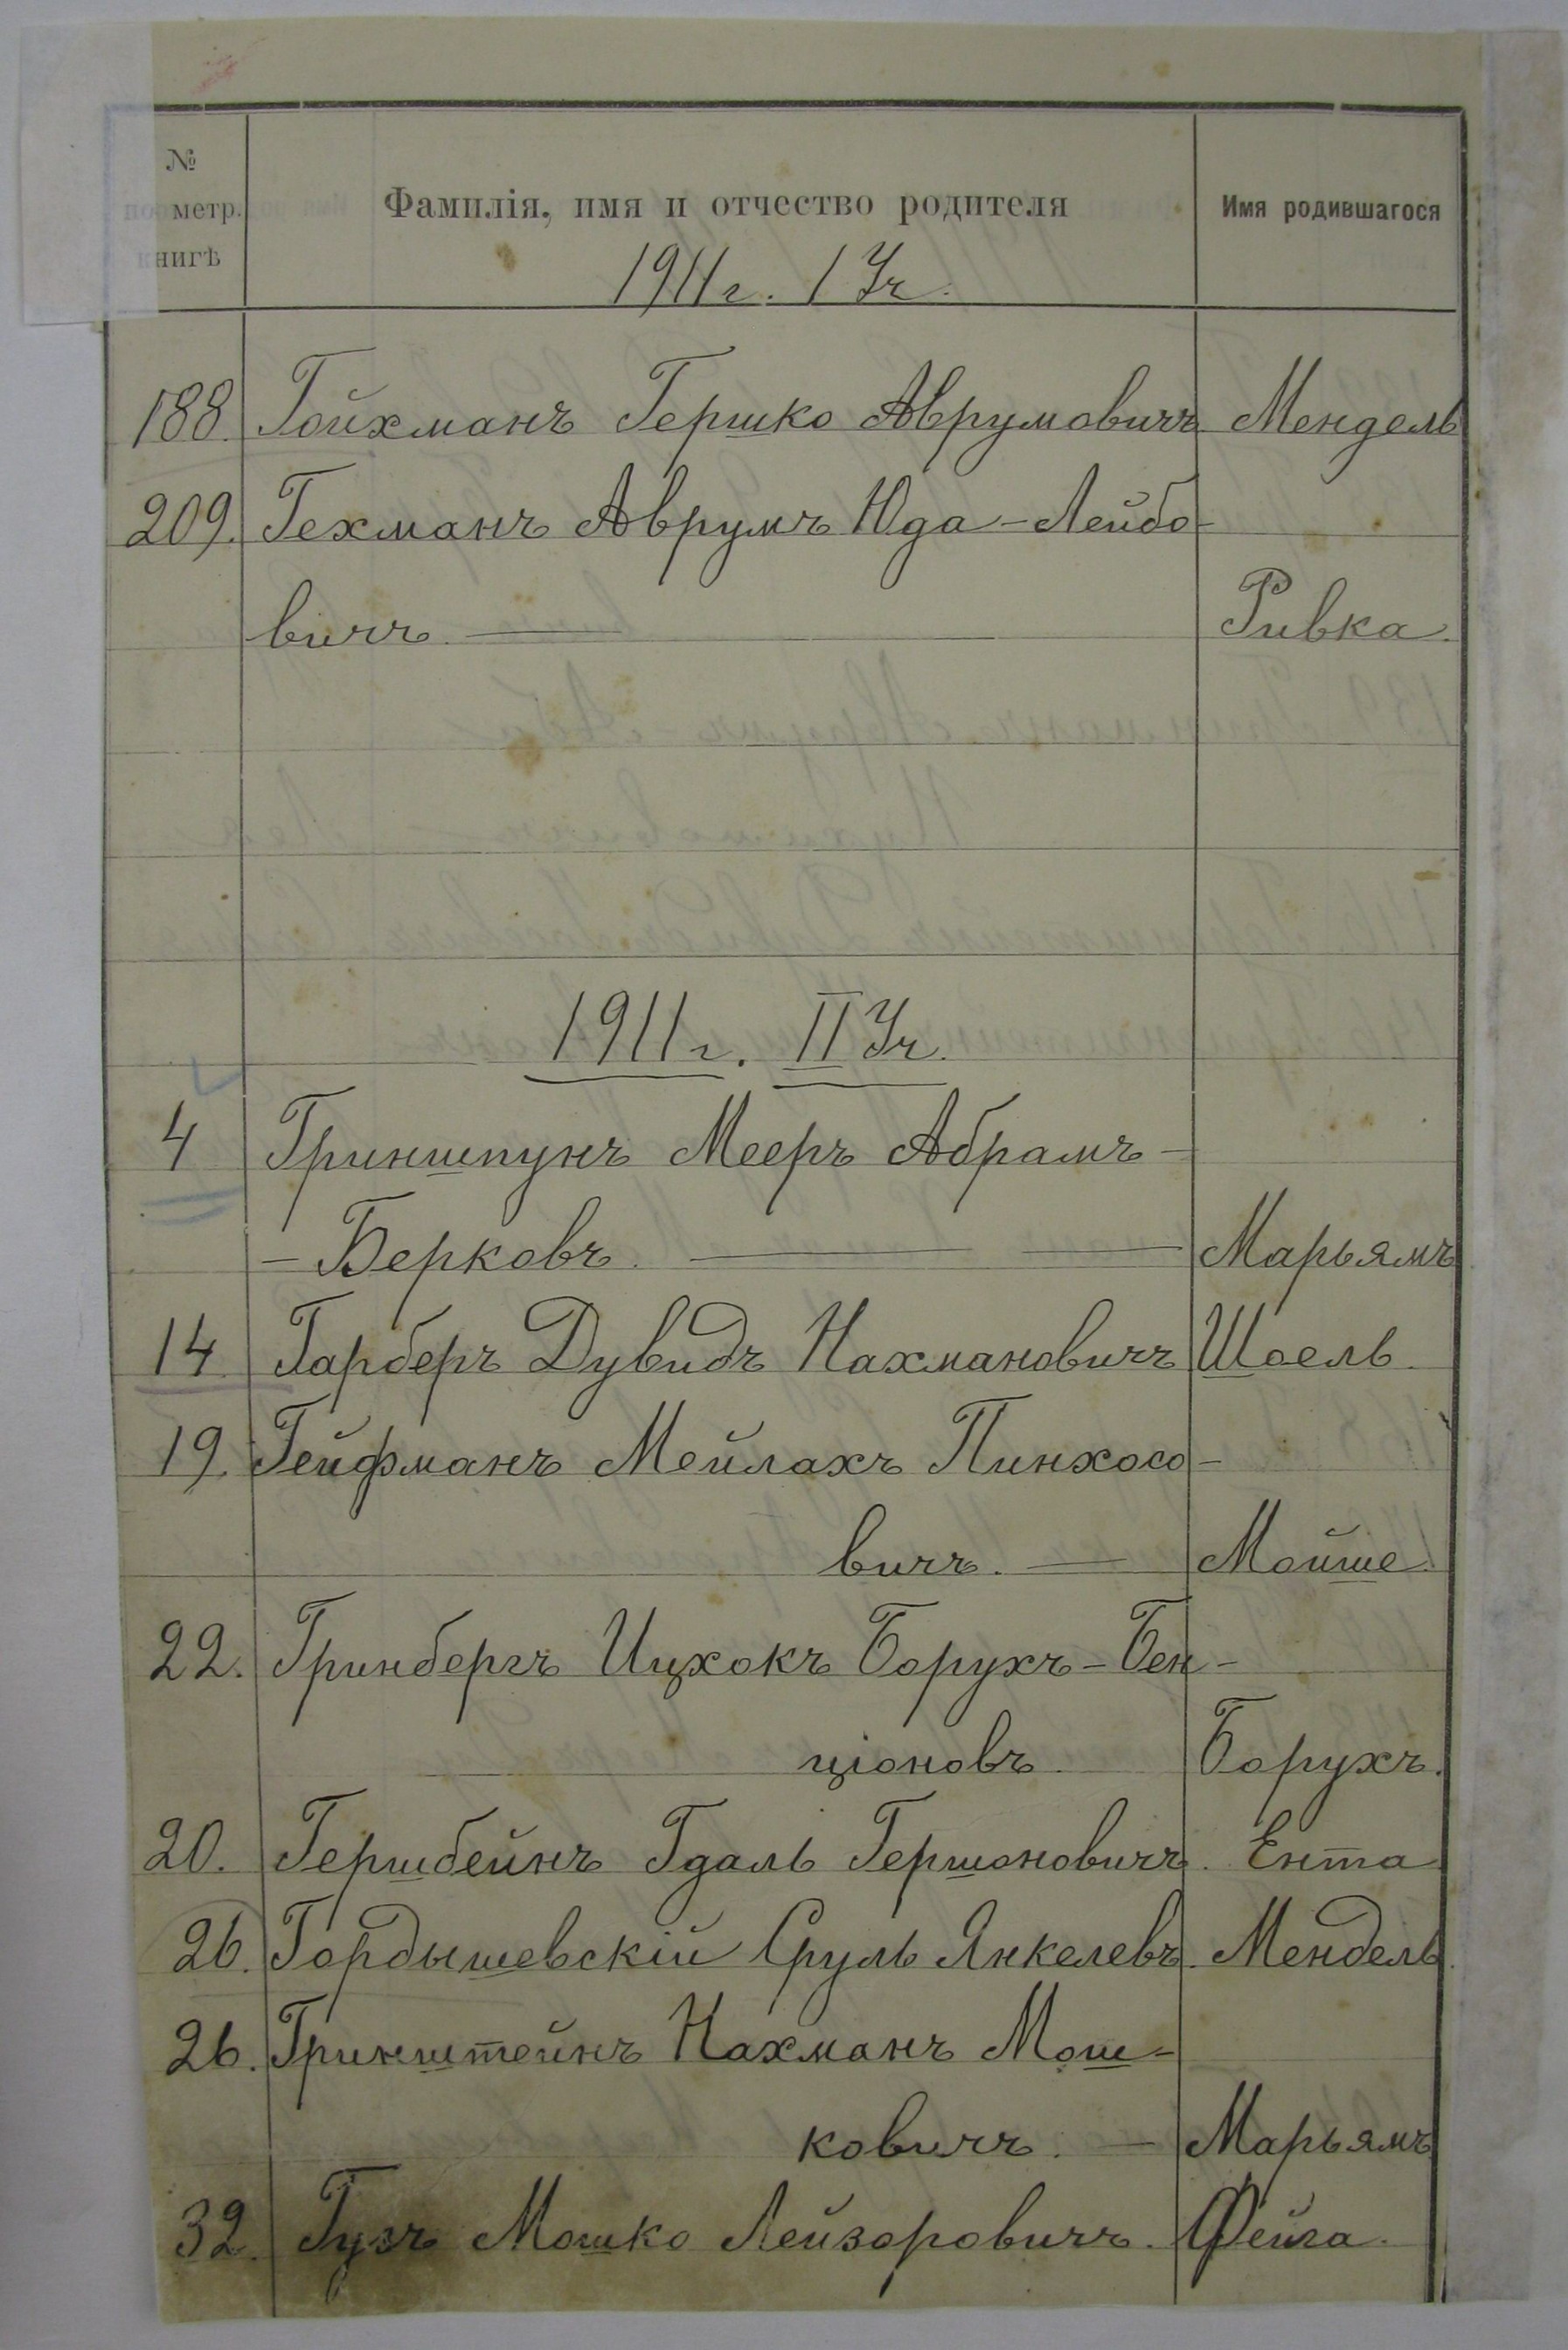 №
по метр.
книгѣ
Фамилія, имя и отчество родителя
Имя родившагося
1911 г. I Уч.
188. Гойхманъ Гершко Аврумовичъ Мендель
209. Гехманъ Аврумъ Юда-Лейбо-
вичъ. — Ривка.
1911 г. II Уч.
4 Гриншпунъ Мееръ Абрамъ-
-Берковъ. — Марьямъ
14 Гарберъ Дувидъ Нахмановичъ Шоель.
19. Гейфманъ Мейлахъ Пинхосо-
вичъ. — Мойше
22. Гринбергъ Ицхокъ Борухъ-Бен-
ціоновъ. Борухъ.
20. Гершбейнъ Гдаль Гершоновичъ. Ента
26. Гордышевскій Сруль Янкелевъ. Мендель.
26. Гринштейнъ Нахманъ Мош-
ковичъ. — Марьямъ
32. Гузъ Мошко Лейзоровичъ. Фейга.